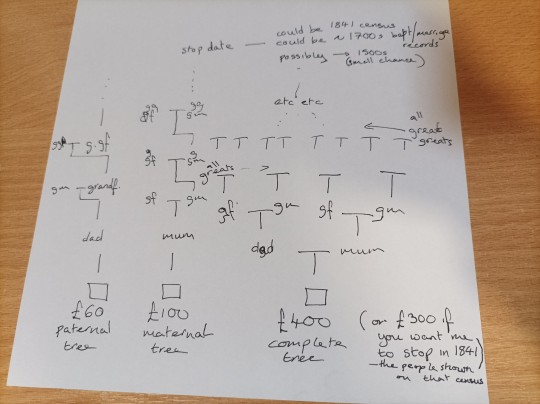 stop date — could be 1841 census
could be ≈ 1700s bapt/marriage records
possibly → 1500s
(small chance)
etc etc
gg gf gg gm
all great greats
g.gf
g gf g gm
all greats
gm grandf.
gf gm
gf gm gf gm
dad
mum
dad mum
£60
paternal
tree
£100
maternal
tree
£400
complete
tree
(or £300 if
you want me
to stop in 1841)
– the people shown
on that census